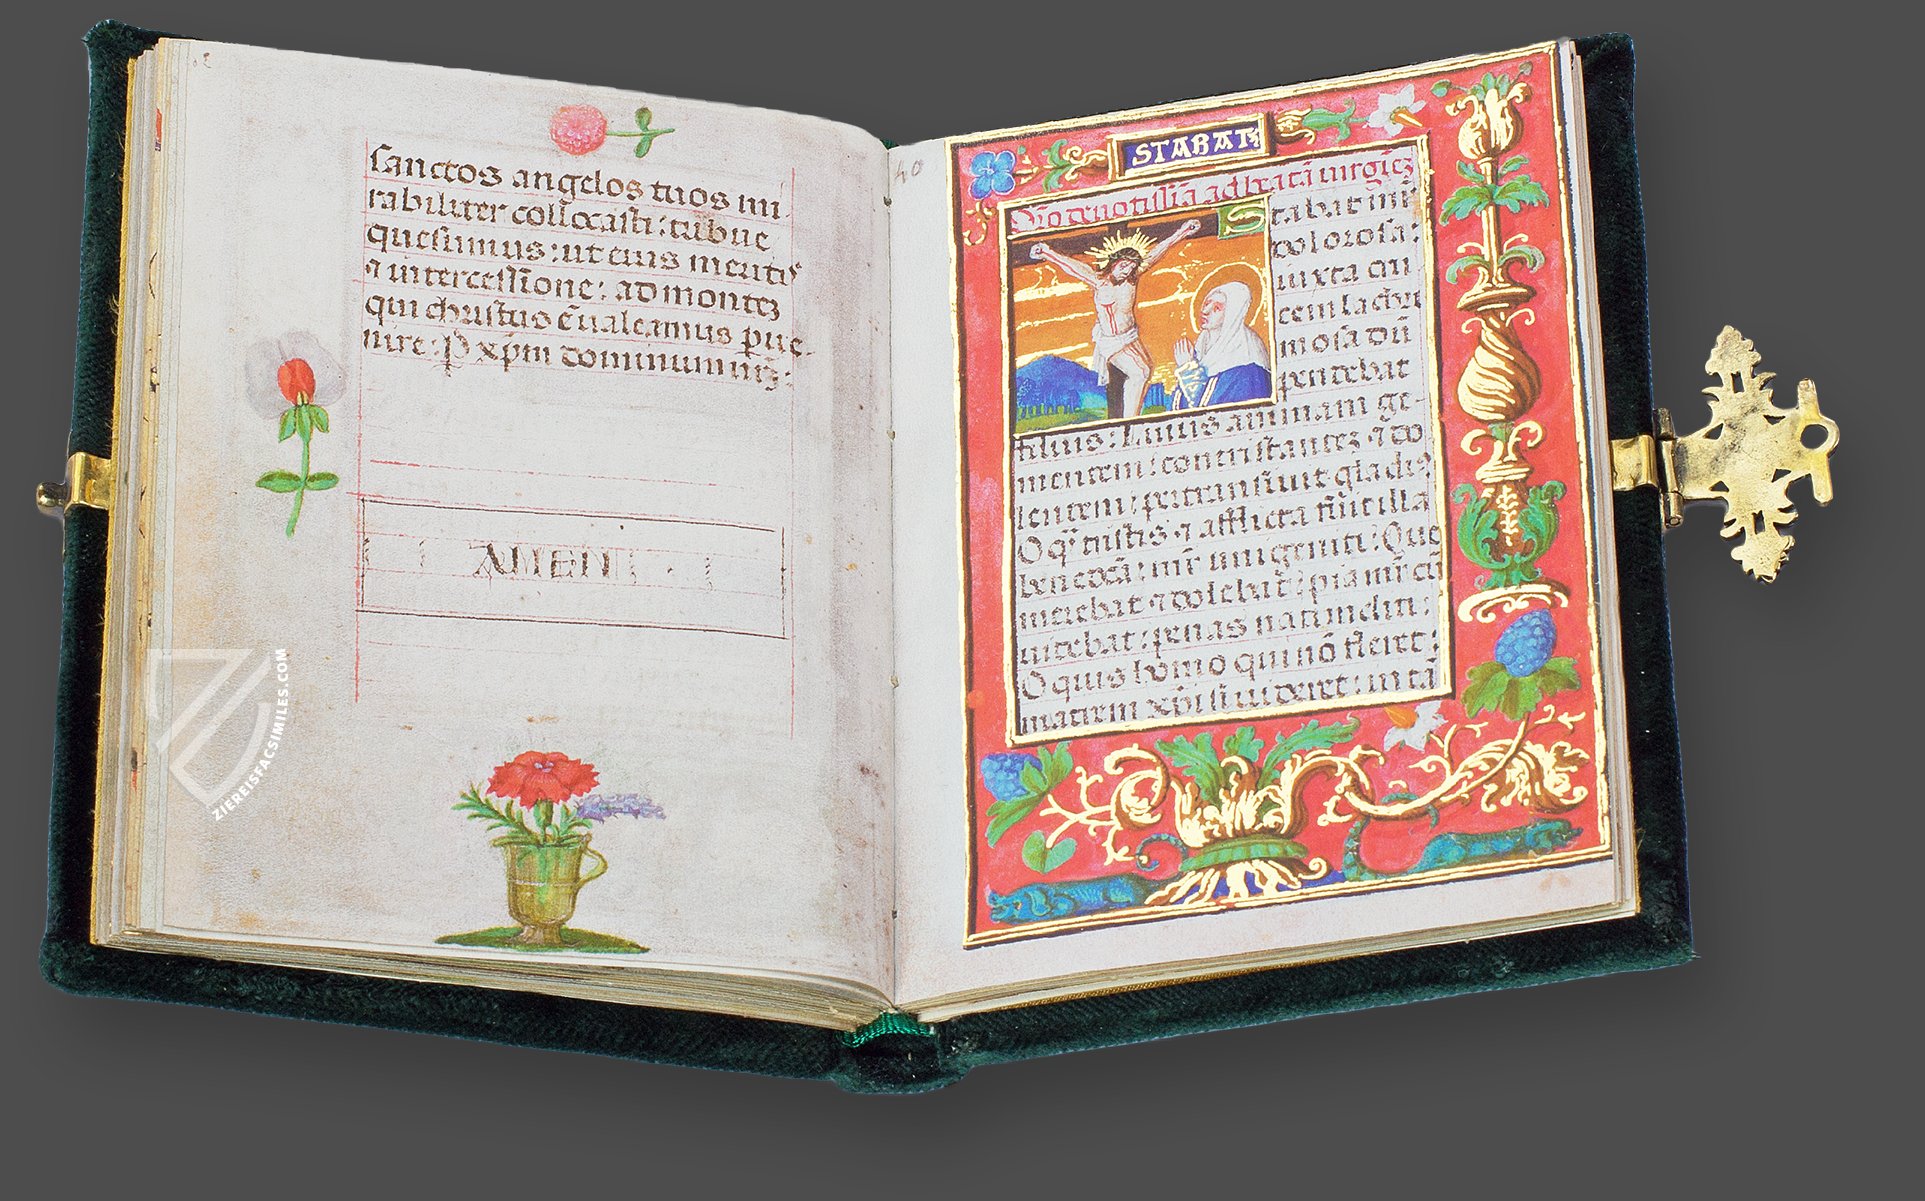 sanctos angelos tuos mi
rabiliter collocasti: tribue
quesumus: ut eius meritis
⁊ intercessione: ad montez
qui christus ē ualeamus p̱ue
nire: P xp̄m dominum nr̄z:
AMEN
40
STABAT
Or̄o deuotissīa ad beatā uirgīez
Stabat mr̄
dolorosa:
iuxta cru
cem lachri
mosa dū
pendebat
filius: Cuius animam ge-
mentem: contristantez ⁊ do
lentem: pertransiuit gladi9
O q̄ tristis ⁊ afflicta fuit illa
benedcā: mr̄ unigeniti: Que
merebat ⁊ dolebat: pia mr̄ cū
uidebat: penas nati incliti:
O quis homo qui nō fleret:
matrem xp̄i si uideret: in tā
ZIEREISFACSIMILES.COM